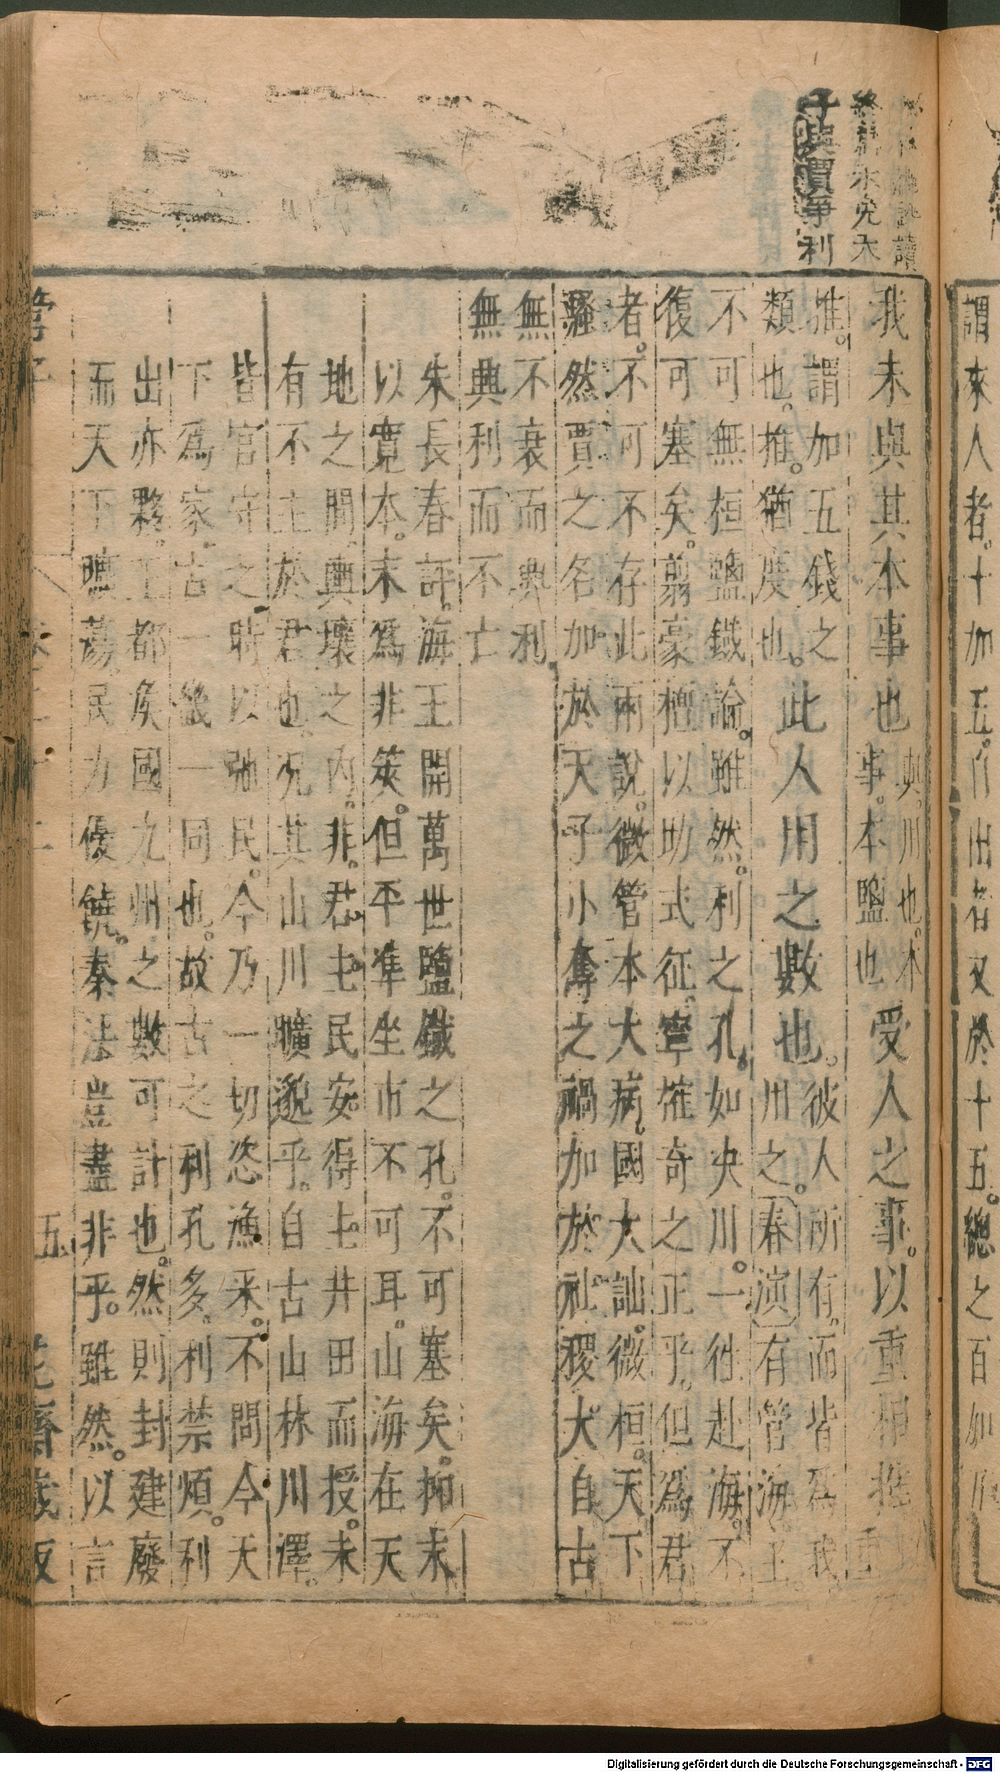 子與賈爭利
我未與其本事也與用也本
事本鹽也受人之事以重相推重
推謂加五錢之此人用之數也彼人所有而皆爲我
類也推猶度也用之春演有管海王
不可無桓鹽鐵論雖然利之孔如央川一往赴海不
復可塞矣翦豪𣞀以助式征寧㩁奇之正乎但爲君
者不可不存此兩說微管本大病國大訕微桓天下
騷然賈之名加於天子小奪之禍加於社稷大自古
無不衰而興利
無興利而不亡
朱長春評海王開萬世鹽鐵之孔不可塞矣抑末
以寬本末爲非筴但平準坐市不可耳山海在天
地之間輿壤之內非君主民安得主井田而授未
有不主於君也况其山川曠邈乎自古山林川澤
皆官守之時以弛民今乃一切恣漁采不問今天
下爲家古一畿一同也故古之利孔多利禁煩利
出亦夥王都侯國九州之數可計也然則封建廢
而天下曠蕩民力優饒秦法豈盡非乎雖然以言
管子
五
花齋藏板
謂來人者十加五
又於十五總之百加
Digitalisierung gefördert durch die Deutsche Forschungsgemeinschaft - DFG